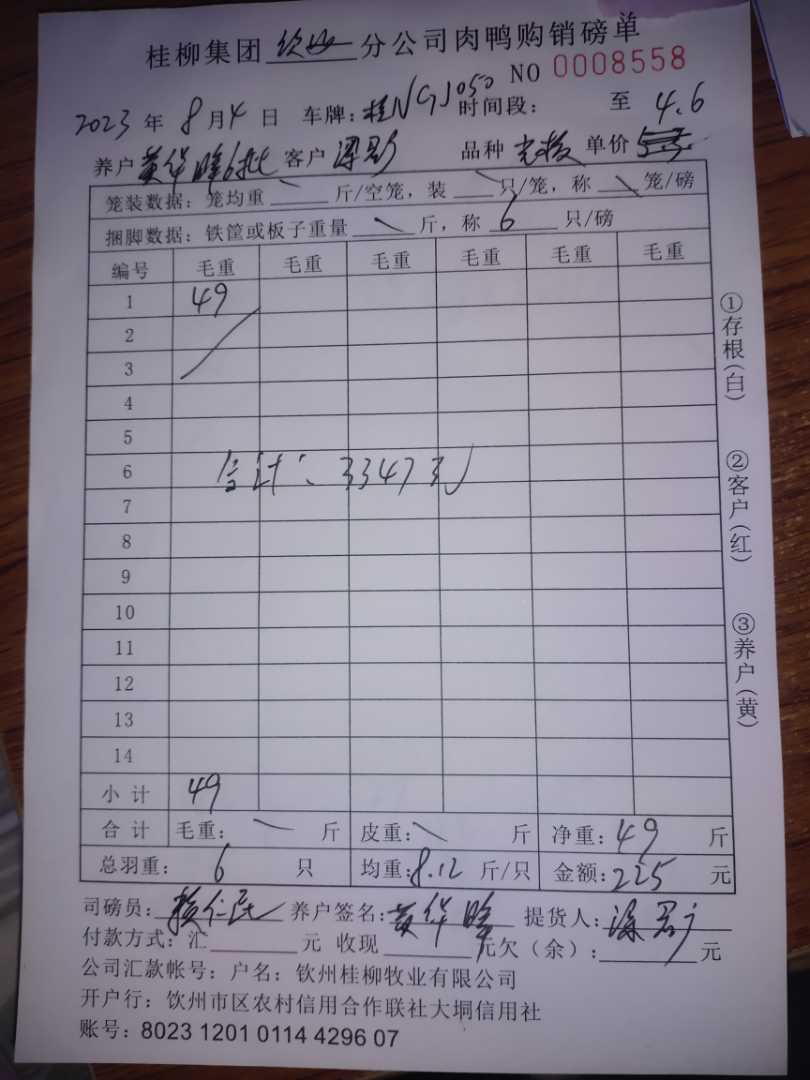 桂柳集团 钦州 分公司肉鸭购销磅单
NO 0008558
2023 年 8 月 4 日 车牌：桂NGJ050 时间段： 至 4.6
养户 黄华 客户 梁 品种 单价
笼装数据：笼均重 斤/空笼，装 只/笼，称 笼/磅
捆脚数据：铁筐或板子重量 斤，称 6 只/磅
编号 毛重 毛重 毛重 毛重 毛重 毛重
1 49
2
3
4
5
6 合计：33473
7
8
9
10
11
12
13
14
小计 49
合计 毛重： 斤 皮重： 斤 净重：49 斤
总羽重： 6 只 均重：8.12 斤/只 金额：225 元
司磅员： 养户签名：黄华 提货人：
付款方式：汇 元 收现 元欠（余）： 元
公司汇款帐号：户名：钦州桂柳牧业有限公司
开户行：钦州市区农村信用合作联社大垌信用社
账号：8023 1201 0114 4296 07
①存根（白）
②客户（红）
③养户（黄）